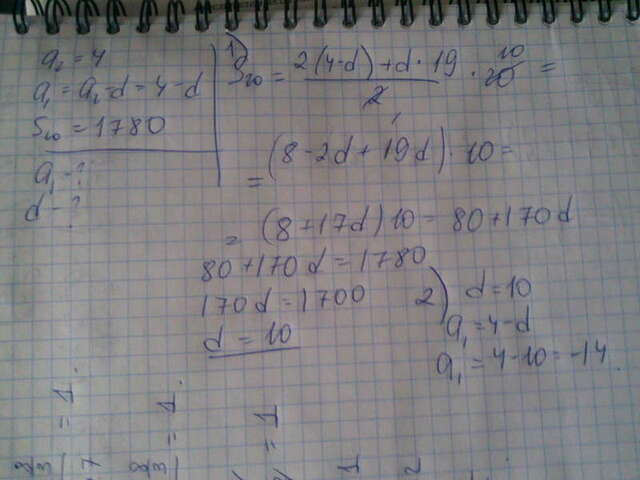 a₂ = 4
a₁ = a₂ - d = 4 - d
S₂₀ = 1780
a₁ - ?
d - ?
1) S₂₀ = (2(4-d) + d · 19) / 2 · 20 10 =
= (8 - 2d + 19d) · 10 =
= (8 + 17d) 10 = 80 + 170d
80 + 170d = 1780
170d = 1700
d = 10
2) d = 10
a₁ = 4 - d
a₁ = 4 - 10 = -14.
= 1.
= 1.
= 1
1
2